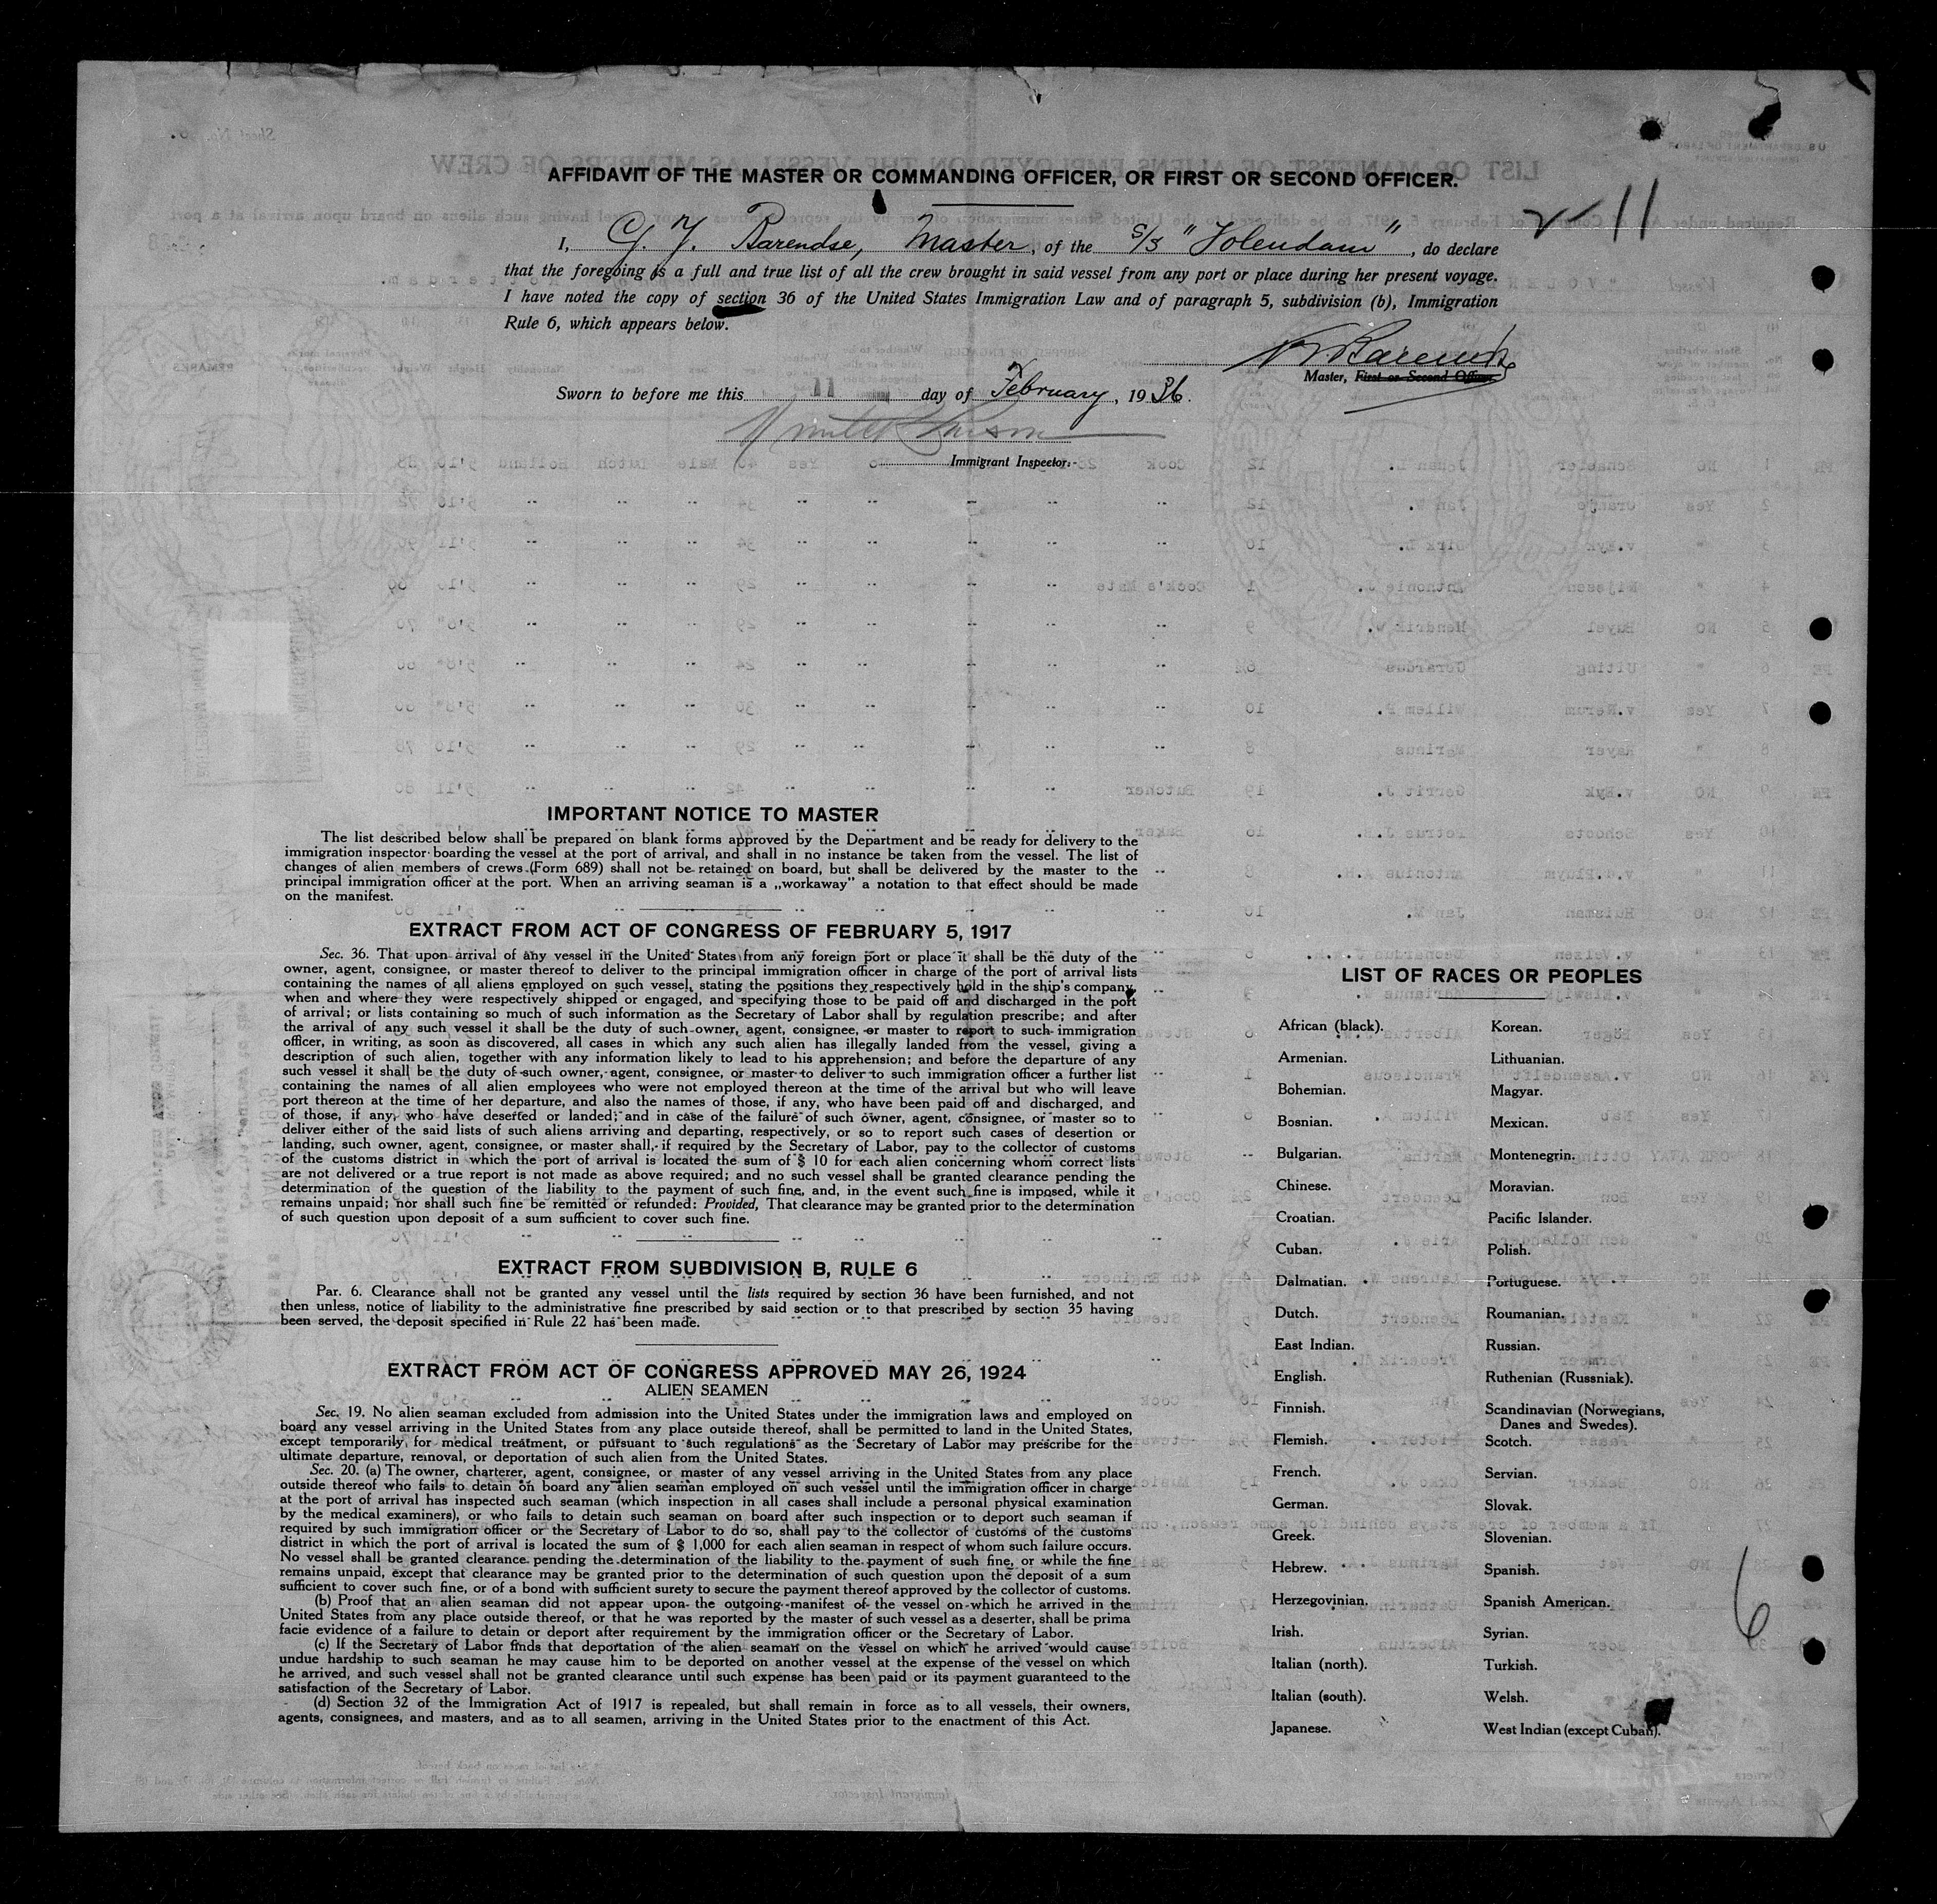 AFFIDAVIT OF THE MASTER OR COMMANDING OFFICER, OR FIRST OR SECOND OFFICER.
11
I, G. J. Barendse, Master, of the S/S "Volendam", do declare
that the foregoing is a full and true list of all the crew brought in said vessel from any port or place during her present voyage.
I have noted the copy of section 36 of the United States Immigration Law and of paragraph 5, subdivision (b), Immigration
Rule 6, which appears below.
Master, First or Second Officer.
Sworn to before me this 11 day of February, 1936.
Immigrant Inspector.
IMPORTANT NOTICE TO MASTER
The list described below shall be prepared on blank forms approved by the Department and be ready for delivery to the
immigration inspector boarding the vessel at the port of arrival, and shall in no instance be taken from the vessel. The list of
changes of alien members of crews (Form 689) shall not be retained on board, but shall be delivered by the master to the
principal immigration officer at the port. When an arriving seaman is a „workaway" a notation to that effect should be made
on the manifest.
EXTRACT FROM ACT OF CONGRESS OF FEBRUARY 5, 1917
Sec. 36. That upon arrival of any vessel in the United States from any foreign port or place it shall be the duty of the
owner, agent, consignee, or master thereof to deliver to the principal immigration officer in charge of the port of arrival lists
containing the names of all aliens employed on such vessel, stating the positions they respectively hold in the ship's company,
when and where they were respectively shipped or engaged, and specifying those to be paid off and discharged in the port
of arrival; or lists containing so much of such information as the Secretary of Labor shall by regulation prescribe; and after
the arrival of any such vessel it shall be the duty of such owner, agent, consignee, or master to report to such immigration
officer, in writing, as soon as discovered, all cases in which any such alien has illegally landed from the vessel, giving a
description of such alien, together with any information likely to lead to his apprehension; and before the departure of any
such vessel it shall be the duty of such owner, agent, consignee, or master to deliver to such immigration officer a further list
containing the names of all alien employees who were not employed thereon at the time of the arrival but who will leave
port thereon at the time of her departure, and also the names of those, if any, who have been paid off and discharged, and
of those, if any, who have deserted or landed; and in case of the failure of such owner, agent, consignee, or master so to
deliver either of the said lists of such aliens arriving and departing, respectively, or so to report such cases of desertion or
landing, such owner, agent, consignee, or master shall, if required by the Secretary of Labor, pay to the collector of customs
of the customs district in which the port of arrival is located the sum of $ 10 for each alien concerning whom correct lists
are not delivered or a true report is not made as above required; and no such vessel shall be granted clearance pending the
determination of the question of the liability to the payment of such fine, and, in the event such fine is imposed, while it
remains unpaid; nor shall such fine be remitted or refunded: Provided, That clearance may be granted prior to the determination
of such question upon deposit of a sum sufficient to cover such fine.
EXTRACT FROM SUBDIVISION B, RULE 6
Par. 6. Clearance shall not be granted any vessel until the lists required by section 36 have been furnished, and not
then unless, notice of liability to the administrative fine prescribed by said section or to that prescribed by section 35 having
been served, the deposit specified in Rule 22 has been made.
EXTRACT FROM ACT OF CONGRESS APPROVED MAY 26, 1924
ALIEN SEAMEN
Sec. 19. No alien seaman excluded from admission into the United States under the immigration laws and employed on
board any vessel arriving in the United States from any place outside thereof, shall be permitted to land in the United States,
except temporarily for medical treatment, or pursuant to such regulations as the Secretary of Labor may prescribe for the
ultimate departure, removal, or deportation of such alien from the United States.
Sec. 20. (a) The owner, charterer, agent, consignee, or master of any vessel arriving in the United States from any place
outside thereof who fails to detain on board any alien seaman employed on such vessel until the immigration officer in charge
at the port of arrival has inspected such seaman (which inspection in all cases shall include a personal physical examination
by the medical examiners), or who fails to detain such seaman on board after such inspection or to deport such seaman if
required by such immigration officer or the Secretary of Labor to do so, shall pay to the collector of customs of the customs
district in which the port of arrival is located the sum of $ 1,000 for each alien seaman in respect of whom such failure occurs.
No vessel shall be granted clearance pending the determination of the liability to the payment of such fine, or while the fine
remains unpaid, except that clearance may be granted prior to the determination of such question upon the deposit of a sum
sufficient to cover such fine, or of a bond with sufficient surety to secure the payment thereof approved by the collector of customs.
(b) Proof that an alien seaman did not appear upon the outgoing manifest of the vessel on which he arrived in the
United States from any place outside thereof, or that he was reported by the master of such vessel as a deserter, shall be prima
facie evidence of a failure to detain or deport after requirement by the immigration officer or the Secretary of Labor.
(c) If the Secretary of Labor finds that deportation of the alien seaman on the vessel on which he arrived would cause
undue hardship to such seaman he may cause him to be deported on another vessel at the expense of the vessel on which
he arrived, and such vessel shall not be granted clearance until such expense has been paid or its payment guaranteed to the
satisfaction of the Secretary of Labor.
(d) Section 32 of the Immigration Act of 1917 is repealed, but shall remain in force as to all vessels, their owners,
agents, consignees, and masters, and as to all seamen, arriving in the United States prior to the enactment of this Act.
LIST OF RACES OR PEOPLES
African (black).
Armenian.
Bohemian.
Bosnian.
Bulgarian.
Chinese.
Croatian.
Cuban.
Dalmatian.
Dutch.
East Indian.
English.
Finnish.
Flemish.
French.
German.
Greek.
Hebrew.
Herzegovinian.
Irish.
Italian (north).
Italian (south).
Japanese.
Korean.
Lithuanian.
Magyar.
Mexican.
Montenegrin.
Moravian.
Pacific Islander.
Polish.
Portuguese.
Roumanian.
Russian.
Ruthenian (Russniak).
Scandinavian (Norwegians,
Danes and Swedes).
Scotch.
Servian.
Slovak.
Slovenian.
Spanish.
Spanish American.
Syrian.
Turkish.
Welsh.
West Indian (except Cuban).
6